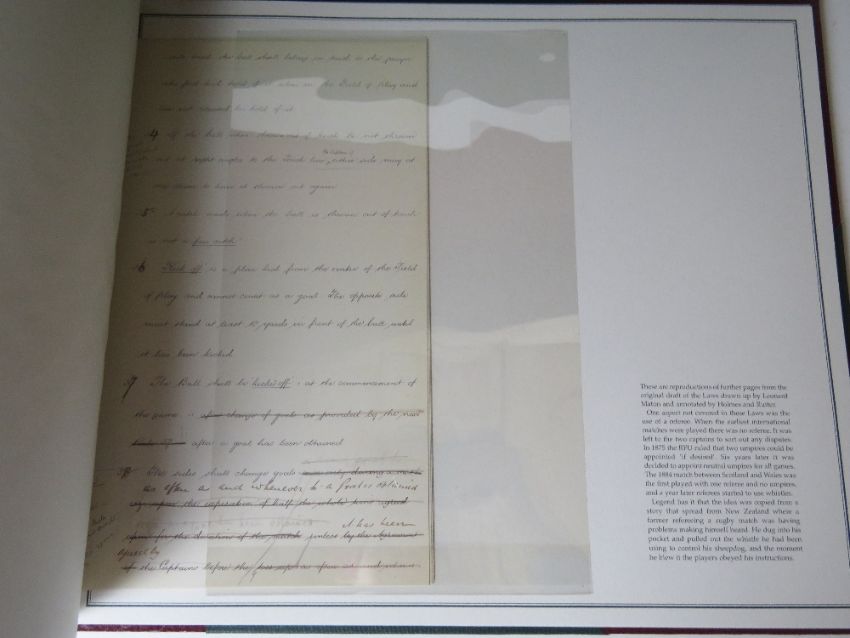 who first had hold of it when in the Field of Play and
4 If the ball when thrown out of touch be not thrown
out at right angles to the Touch line, either side may at
once claim to have it thrown out again
5 A catch made when the ball is thrown out of touch
is not a fair catch
6 Kick off is a place kick from the centre of the Field
of Play and cannot count as a goal. The opposite side
must stand at least 10 yards in front of the ball until
it has been kicked
37 The Ball shall be kicked off: at the commencement of
the game: after change of goals as provided by the next
after a goal has been obtained
38 The sides shall change goals
as often as and whenever a
upon the expiration of half the
it has been
for the duration of the match unless by the agreement
agreed by
of the Captains before the
These are reproductions of further pages from the
original draft of the Laws drawn up by Leonard
Maton and annotated by Holmes and Rutter.
One aspect not covered in these Laws was the
use of a referee. When the earliest international
matches were played there was no referee. It was
left to the two captains to sort out any disputes.
In 1875 the RFU ruled that two umpires could be
appointed 'if desired'. Six years later it was
decided to appoint neutral umpires for all games.
The 1884 match between Scotland and Wales was
the first played with one referee and no umpires,
and a year later referees started to use whistles.
Legend has it that the idea was copied from a
story that spread from New Zealand where a
farmer refereeing a rugby match was having
problems making himself heard. He dug into his
pocket and pulled out the whistle he had been
using to control his sheepdog, and the moment
he blew it the players obeyed his instructions.